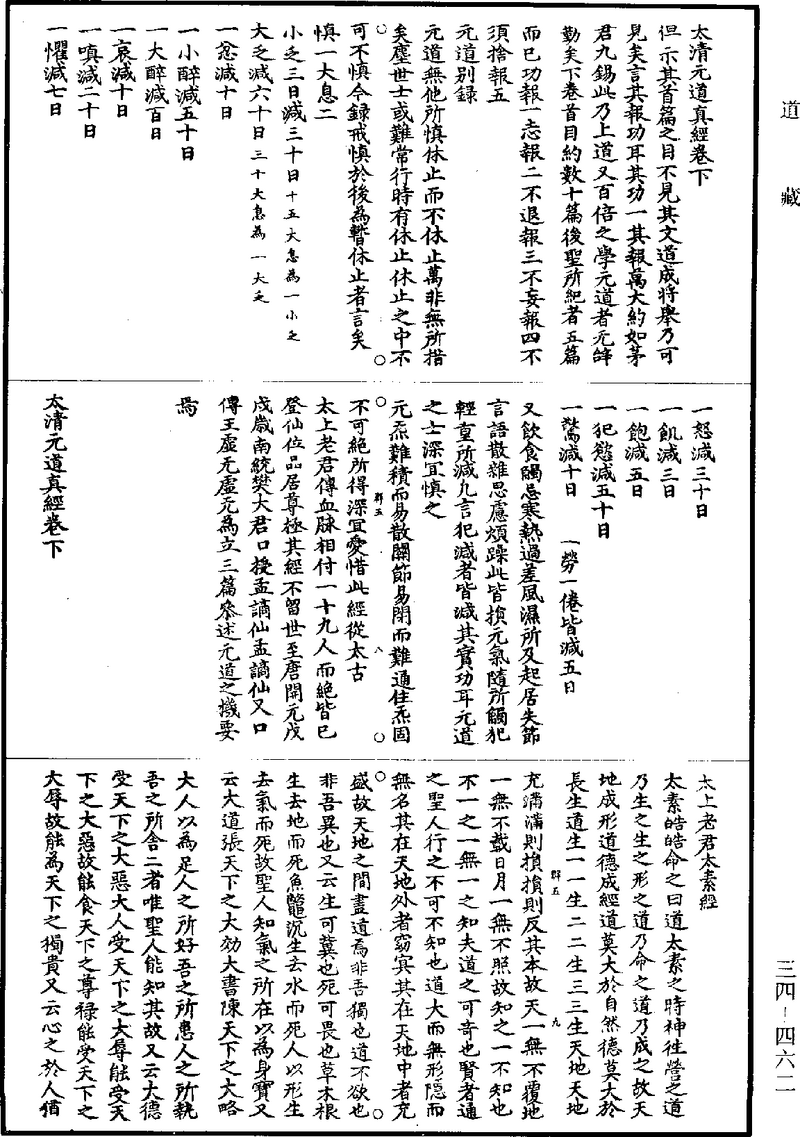 道藏
太清元道真經卷下
但示其首篇之目不見其文道成將舉乃可
見矣言其報功耳其功一其報萬大約如茅
君九錫此乃上道又百倍之學元道者元皞
勤矣下卷首目約數十篇後聖所紀者五篇
而已功報一志報二不退報三不妄報四不
須捨報五
元道別錄
元道無他所慎休止而不休止萬非無所措
矣塵世士或難常行時有休止休止之中不
可不慎今録戒慎於後為暫休止者言矣
慎一大息二
小乏三日減三十日十五大息為一小乏
大乏減六十日三十大息為一大乏
一忿減十日
一小醉減五十日
一大醉減百日
一哀減十日
一嗔減二十日
一懼減七日
一怒減三十日
一飢減三日
一飽減五日
一犯慾減五十日
一驚減十日 一勞一倦皆減五日
又飲食觸忌寒熱過差風濕所及起居失節
言語散雜思慮煩躁此皆損元氣隨所觸犯
輕重所減九言犯減者皆減其實功耳元道
之士深冝慎之
元炁難積而易散關節易閉而難通住炁固
不可絶所得深冝愛惜此經從太古
群五 八
太上老君傳血脉相付一十九人而絶皆已
登仙位品居尊極其經不留世至唐開元戊
戌歲南統樊大君口授孟謫仙孟謫仙又口
傳王虛无虛无為立三篇叅述元道之機要
焉
太清元道真經卷下
太上老君太素經
太素皓皓命之曰道太素之時神徃營之道
乃生之生之形之道乃命之道乃成之故天
地成形道德成經道莫大於自然德莫大於
長生道生一一生二二生三三生天地天地
充滿滿則損損則反其本故天一無不覆地
群五 九
一無不載日月一無不照故知之一不知也
不一之一無一之知夫道之可奇也賢者通
之聖人行之不可不知也道大而無形隱而
無名其在天地外者窈冥其在天地中者充
盛故天地之間盡道焉非吾獨也道不欲也
非吾異也又云生可冀也死可畏也草木根
生去地而死魚鼈沉生去水而死人以形生
去氣而死故聖人知氣之所在以為身寶又
云大道張天下之大効大書陳天下之大略
大人以為足人之所好吾之所患人之所執
吾之所舍二者唯聖人能知其故又云大德
受天下之大惡大人受天下之大辱能受天
下之大惡故能食天下之尊禄能受天下之
大辱故能為天下之獨貴又云心之於人猶
三四-四六二